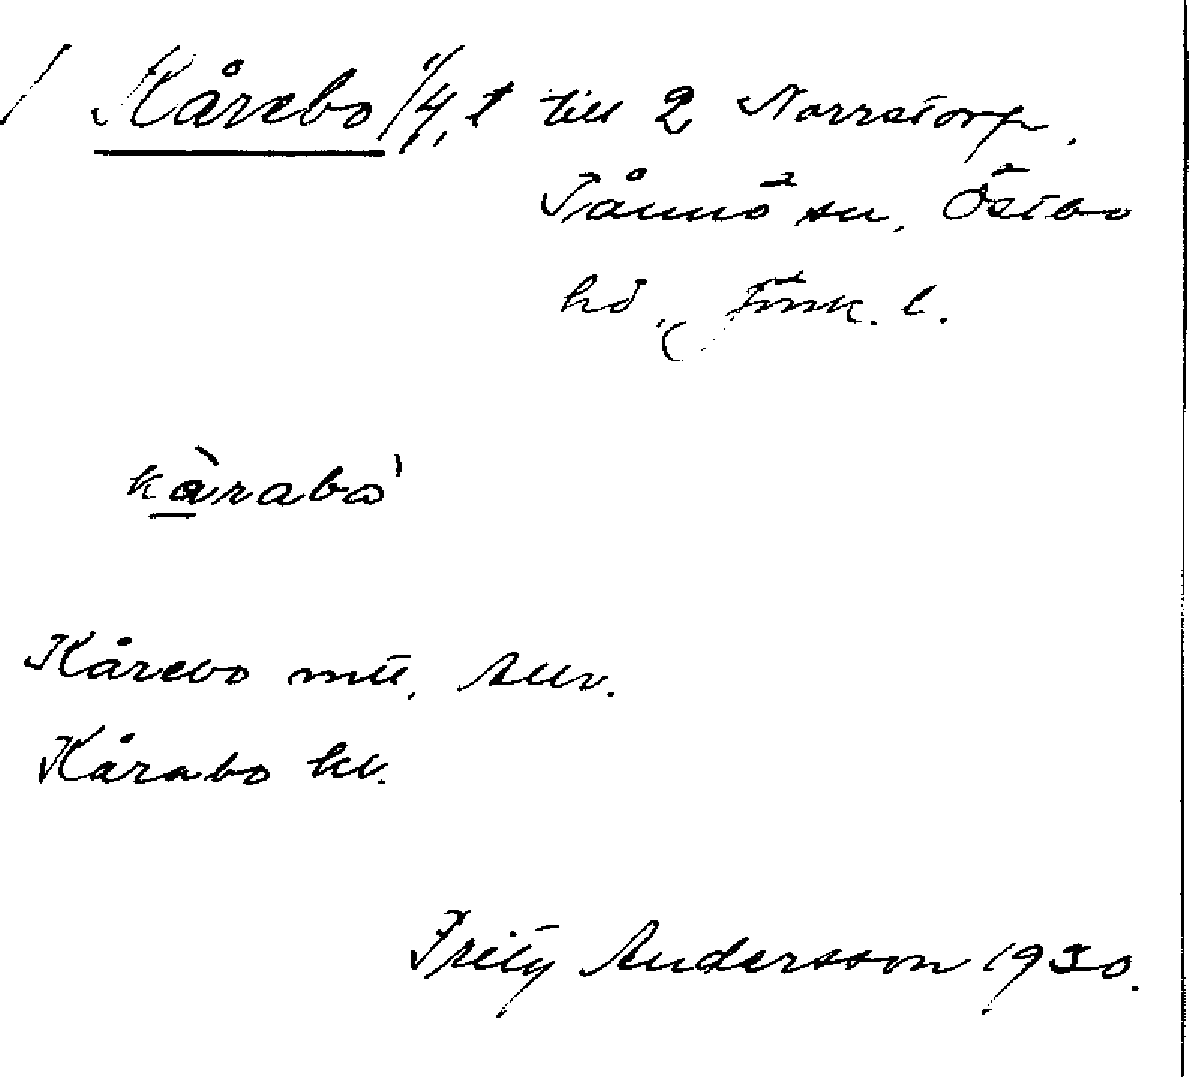 Kårebo 1/4, t till 2 Norretorp.
Tånnö sn, Östbo
hd, Jönk. l.
kàrabo'
Kårebo mtl. Allv.
Kårabo kv.
Fritz Andersson 1930.